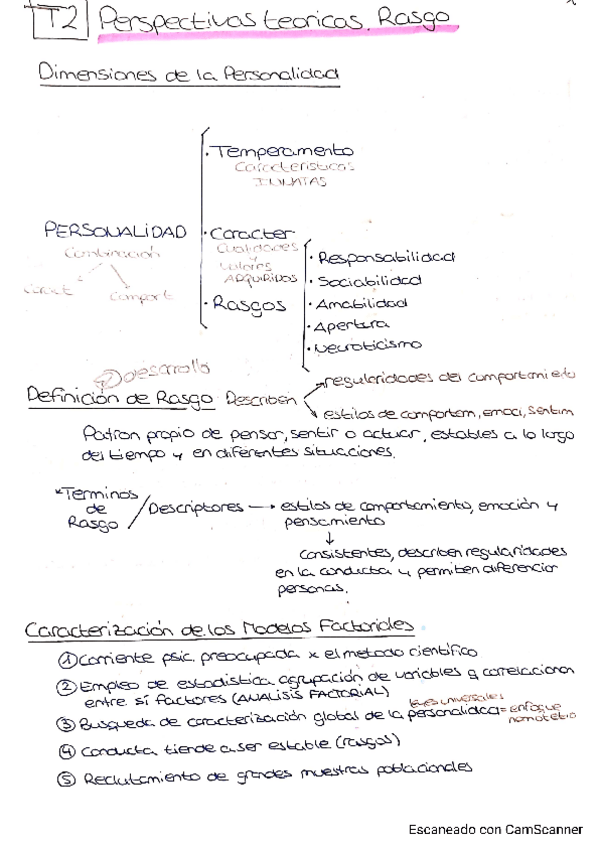 T2 Perspectivas teoricas. Rasgo
Dimensiones de la Personalidad
· Temperamento
Características
INNATAS
PERSONALIDAD
Combinación
Caract
Comport
· Caracter
Cualidades
y
valores
ADQUIRIDOS
· Rasgos
· Responsabilidad
· Sociabilidad
· Amabilidad
· Apertura
· Neuroticismo
desarrollo
Definición de Rasgo Describen
regularidades del comportamiento
estilos de comportam, emoci, sentim
Patron propio de pensar, sentir o actuar, estables a lo largo
del tiempo y en diferentes situaciones.
*Terminos
de
Rasgo
/ Descriptores → estilos de comportamiento, emoción y
pensamiento
↓
consistentes, describen regularidades
en la conducta y permiten diferenciar
personas.
Caracterización de los Modelos Factoriales
① Corriente psic. preocupada x el metodo científico
② Empleo de estadistica agrupación de variables q correlacionan
entre sí factores (ANALISIS FACTORIAL)
leyes universales
③ Busqueda de caracterización global de la personalidad = enfoque
nomotetico
④ Conducta tiende a ser estable (rasgos)
⑤ Reclutamiento de grandes muestras poblacionales
Escaneado con CamScanner